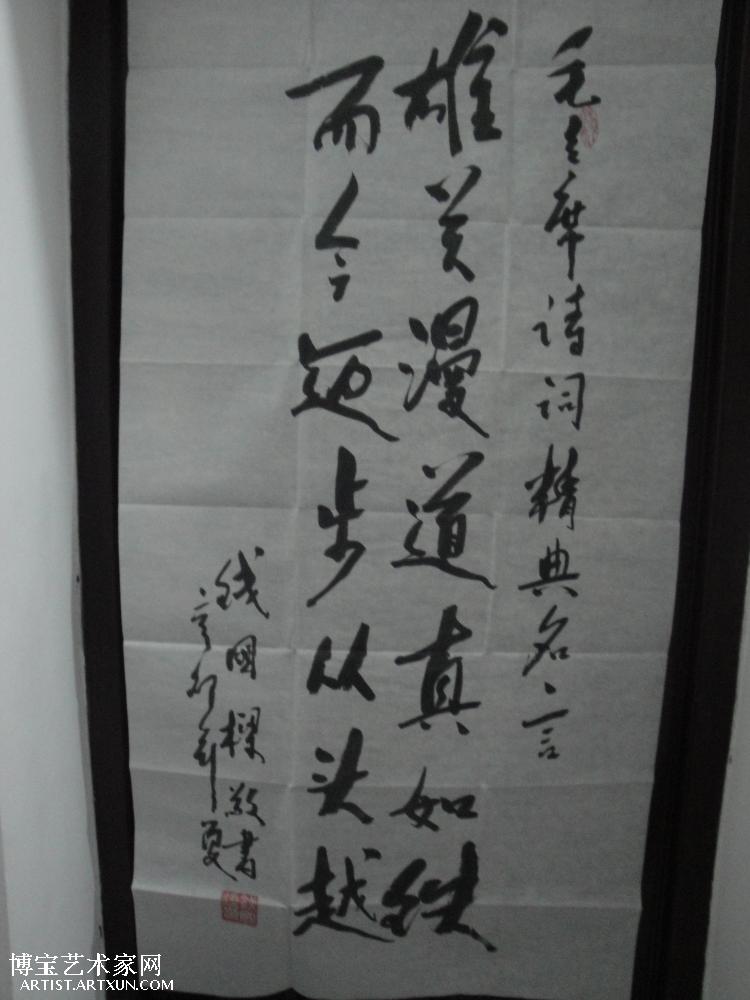 毛主席诗词精典名言
雄关漫道真如铁
而今迈步从头越
钱國樑敬書
辛卯年夏
博宝艺术家网
ARTIST.ARTXUN.COM